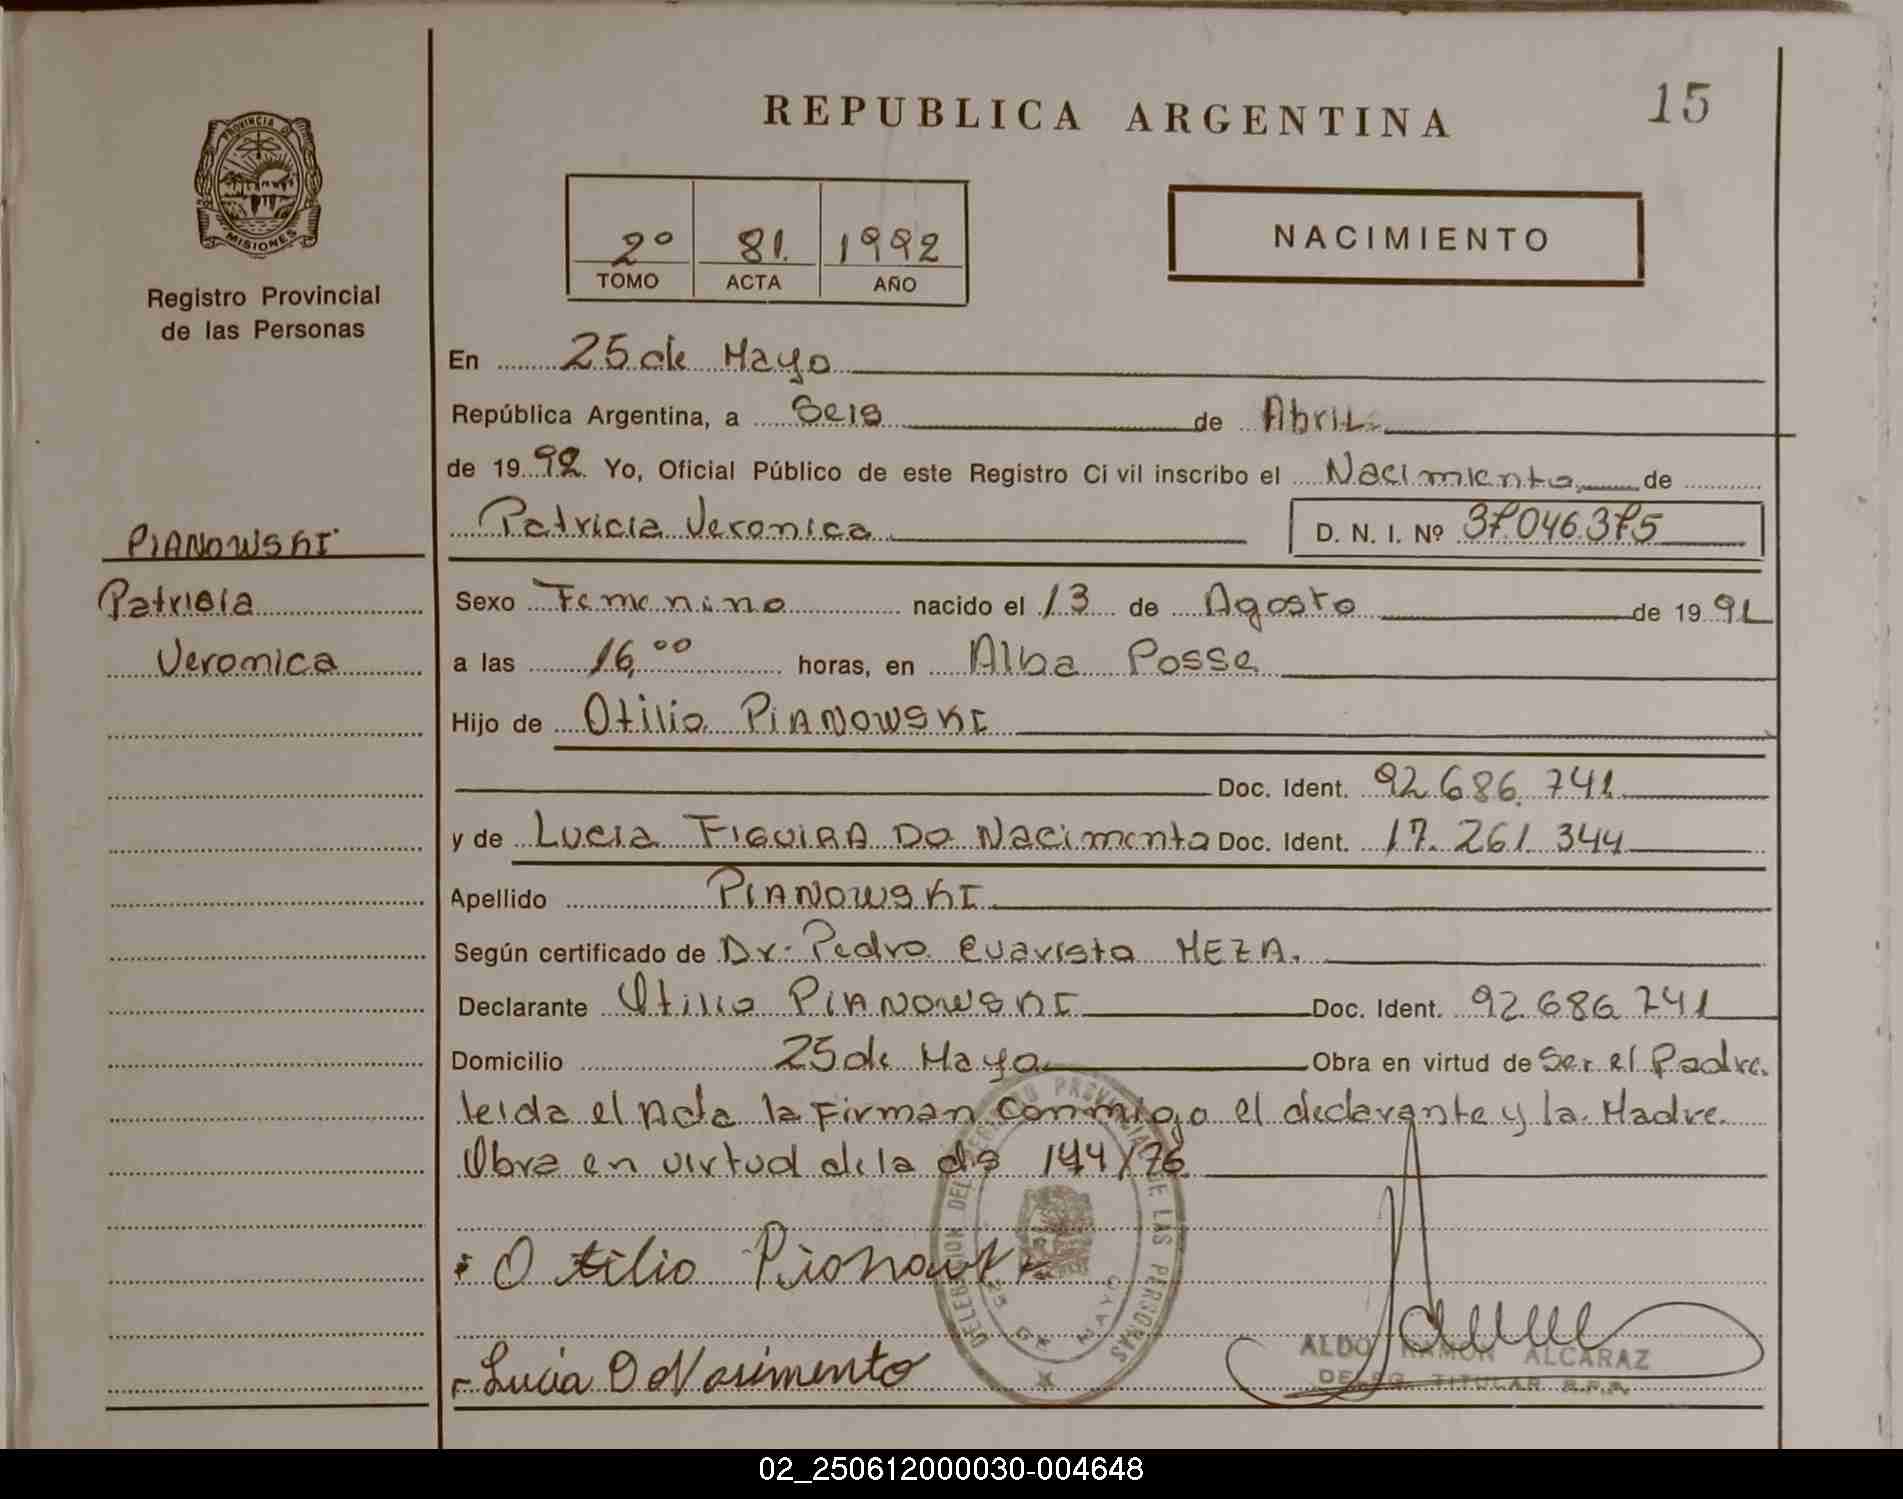 REPUBLICA ARGENTINA
15
PROVINCIA DE
MISIONES
Registro Provincial
de las Personas
2º 81. 1992
TOMO ACTA AÑO
NACIMIENTO
En 25 de Mayo
República Argentina, a Seis de Abril
de 1992 Yo, Oficial Público de este Registro Civil inscribo el Nacimiento de
Patricia Veronica D. N. I. Nº 37.046.375
PIANOWSKI
Patricia
Veronica
Sexo Femenino nacido el 13 de Agosto de 1991
a las 16,00 horas, en Alba Posse
Hijo de Otilio PIANOWSKI
Doc. Ident. 92.686.741
y de Lucia FIGUIRA DO Nacimento Doc. Ident. 17.261.344
Apellido PIANOWSKI
Según certificado de Dr. Pedro Evaristo MEZA.
Declarante Otilio PIANOWSKI Doc. Ident. 92.686.741
Domicilio 25 de Mayo Obra en virtud de Ser el Padre.
leida el Acta la Firman conmigo el declarante y la Madre.
Obra en virtud de la 144/76
DELEGACION DEL REGISTRO PROVINCIAL DE LAS PERSONAS
25 DE MAYO
Otilio Pianowski
Lucia D Nasimento
ALDO RAMON ALCARAZ
DELEG. TITULAR R.P.P.
02_250612000030-004648